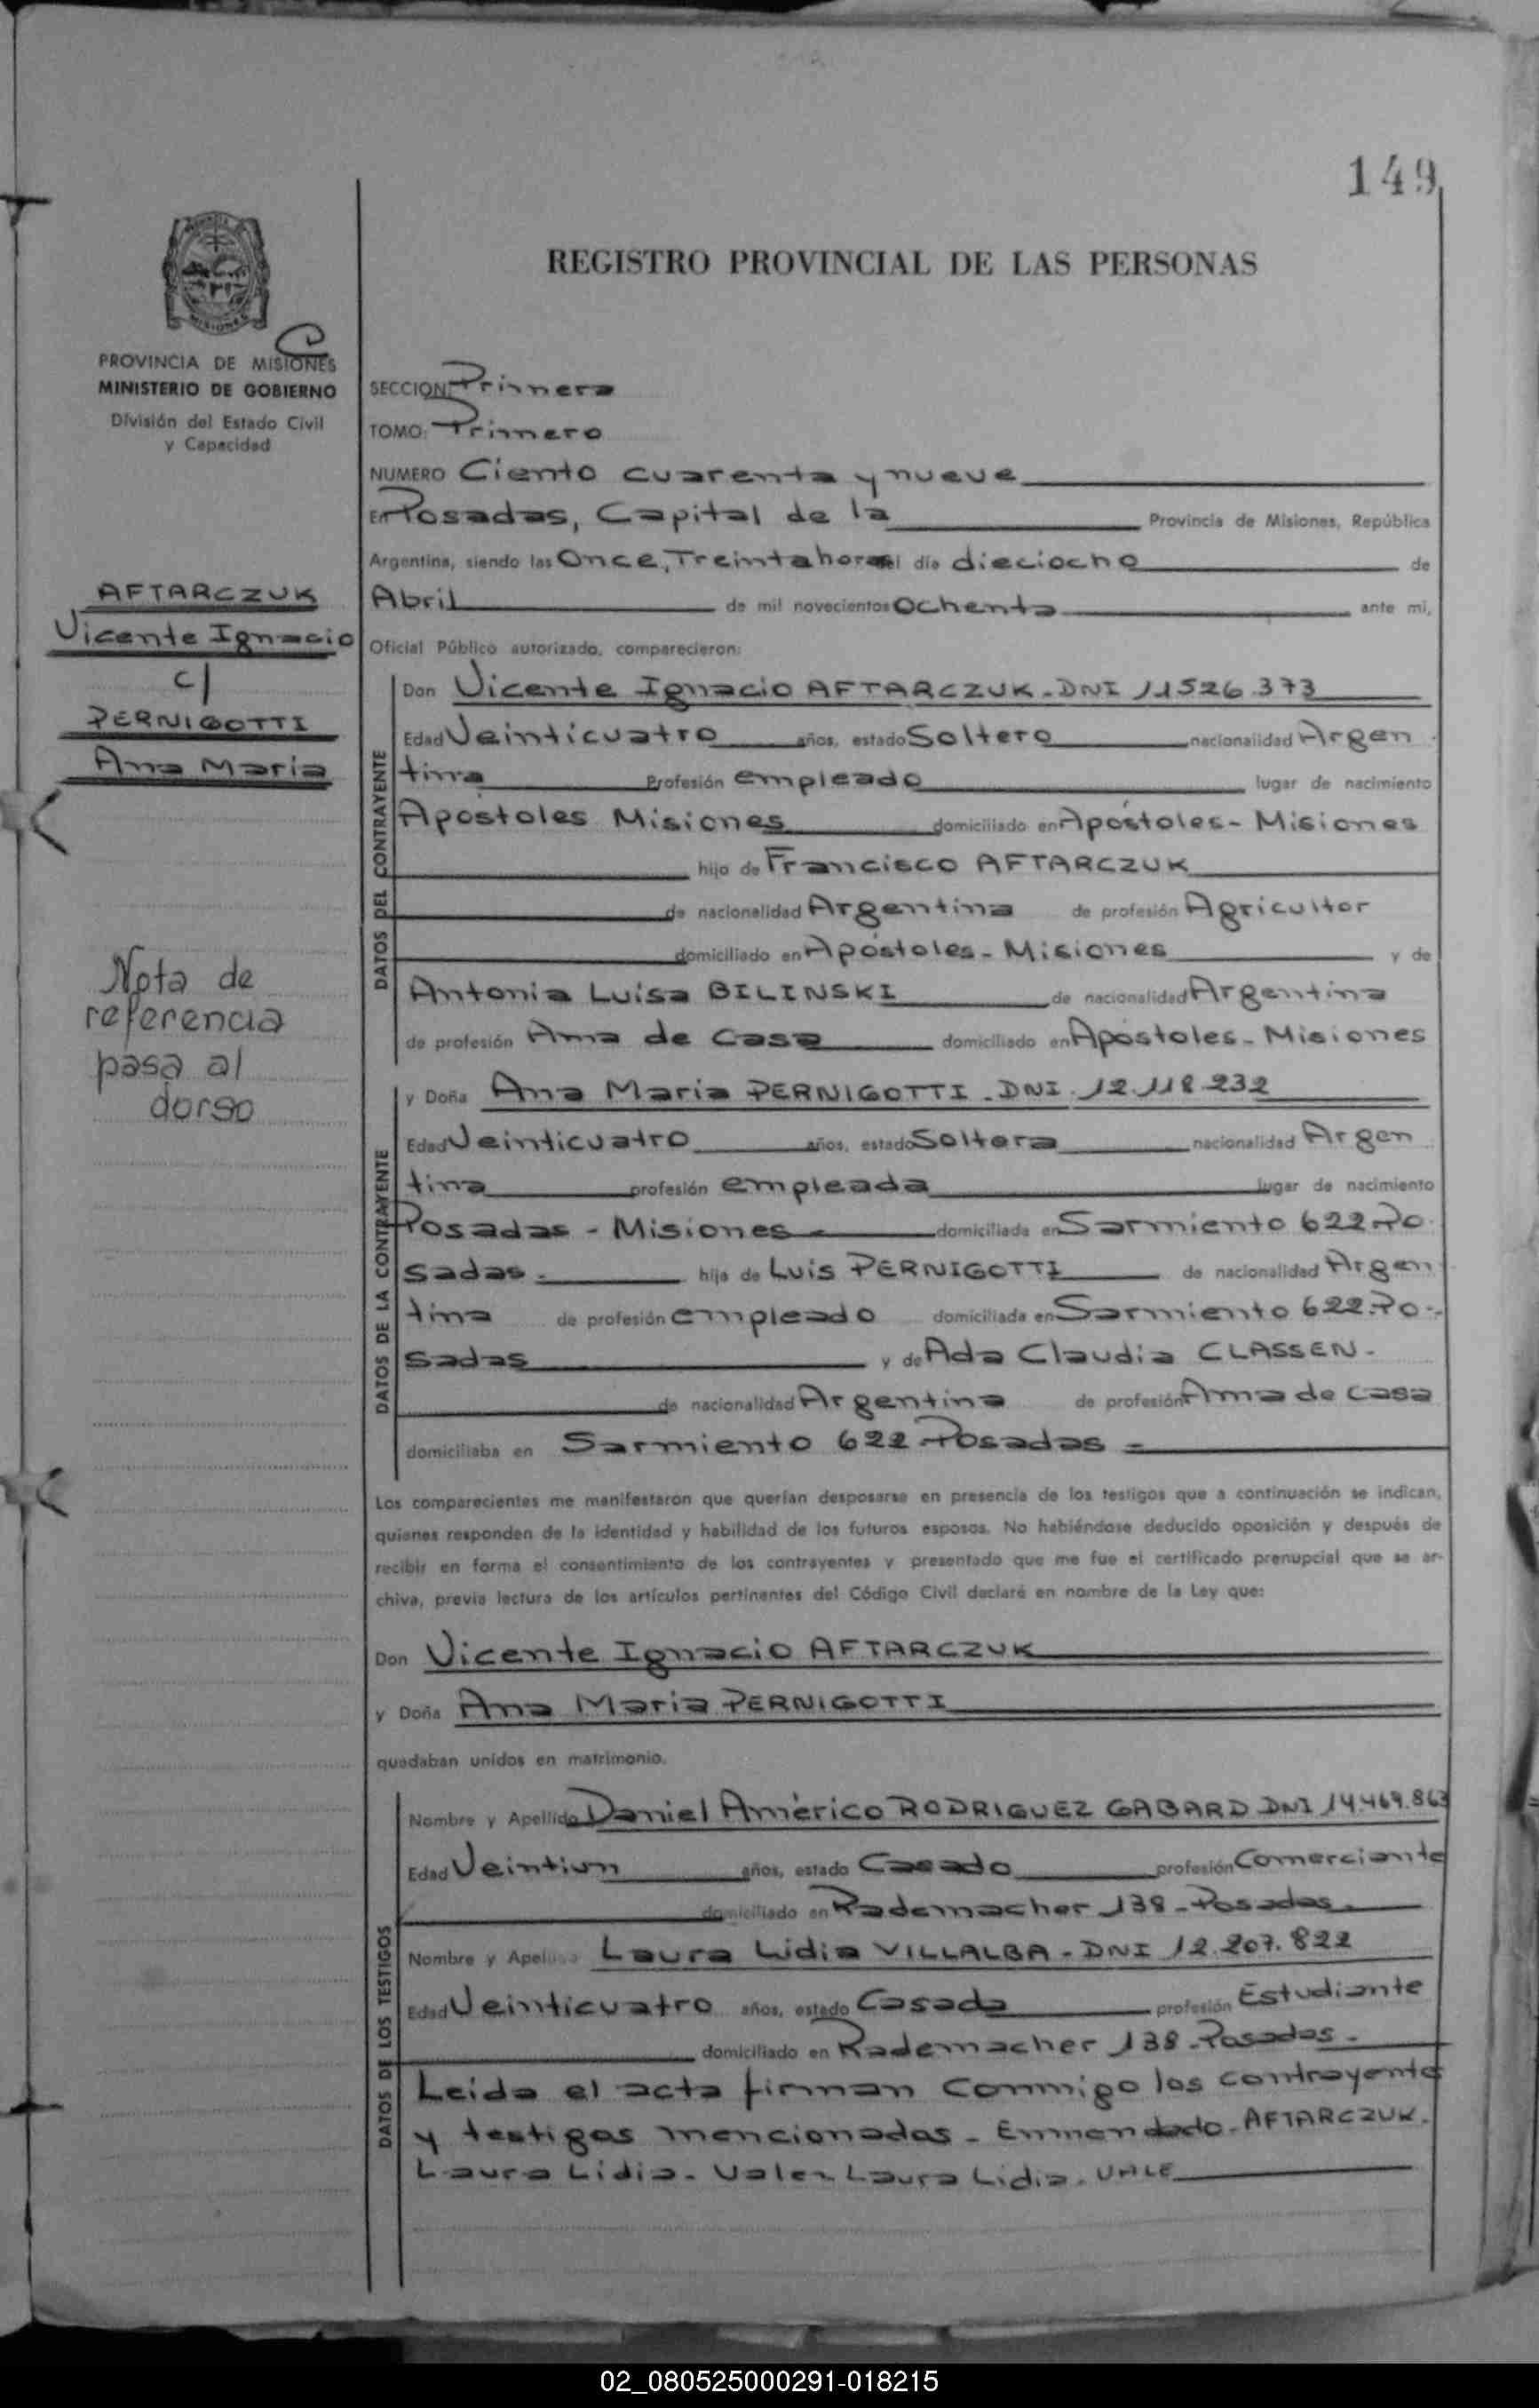 149
REGISTRO PROVINCIAL DE LAS PERSONAS
PROVINCIA DE MISIONES
MINISTERIO DE GOBIERNO
División del Estado Civil
y Capacidad
AFTARCZUK
Vicente Ignacio
c/
PERNIGOTTI
Ana Maria
Nota de
referencia
pasa al
dorso
SECCION: Primera
TOMO: Primero
NUMERO Ciento cuarenta y nueve
En Posadas, Capital de la Provincia de Misiones, República
Argentina, siendo las Once, Treinta horas el día dieciocho de
Abril de mil novecientos Ochenta ante mi,
Oficial Público autorizado, comparecieron:
DATOS DEL CONTRAYENTE
Don Vicente Ignacio AFTARCZUK - DNI 11.526.373
Edad Veinticuatro años, estado Soltero nacionalidad Argen
tina Profesión empleado lugar de nacimiento
Apóstoles Misiones domiciliado en Apóstoles - Misiones
hijo de Francisco AFTARCZUK
de nacionalidad Argentina de profesión Agricultor
domiciliado en Apóstoles - Misiones y de
Antonia Luisa BILINSKI de nacionalidad Argentina
de profesión Ama de Casa domiciliado en Apóstoles - Misiones
DATOS DE LA CONTRAYENTE
y Doña Ana Maria PERNIGOTTI - DNI. 12.118.232
Edad Veinticuatro años, estado Soltera nacionalidad Argen
tina profesión empleada lugar de nacimiento
Posadas - Misiones - domiciliada en Sarmiento 622-Po
sadas - hija de Luis PERNIGOTTI de nacionalidad Argen
tina de profesión empleado domiciliada en Sarmiento 622-Po-
sadas y de Ada Claudia CLASSEN -
de nacionalidad Argentina de profesión Ama de casa
domiciliaba en Sarmiento 622-Posadas -
Los comparecientes me manifestaron que querían desposarse en presencia de los testigos que a continuación se indican,
quienes responden de la identidad y habilidad de los futuros esposos. No habiéndose deducido oposición y después de
recibir en forma el consentimiento de los contrayentes y presentado que me fue el certificado prenupcial que se ar-
chiva, previa lectura de los artículos pertinentes del Código Civil declaré en nombre de la Ley que:
Don Vicente Ignacio AFTARCZUK
y Doña Ana Maria PERNIGOTTI
quedaban unidos en matrimonio.
DATOS DE LOS TESTIGOS
Nombre y Apellido Daniel Américo RODRIGUEZ GABARD DNI 14.469.863
Edad Veintiun años, estado Casado profesión Comerciante
domiciliado en Rademacher 138 - Posadas -
Nombre y Apellido Laura Lidia VILLALBA - DNI 12.207.822
Edad Veinticuatro años, estado Casada profesión Estudiante
domiciliado en Rademacher 138 - Posadas -
Leida el acta firman Conmigo los contrayente
y testigos mencionados - Enmendado - AFTARCZUK.
Laura Lidia - Vale - Laura Lidia - VALE
02_080525000291-018215